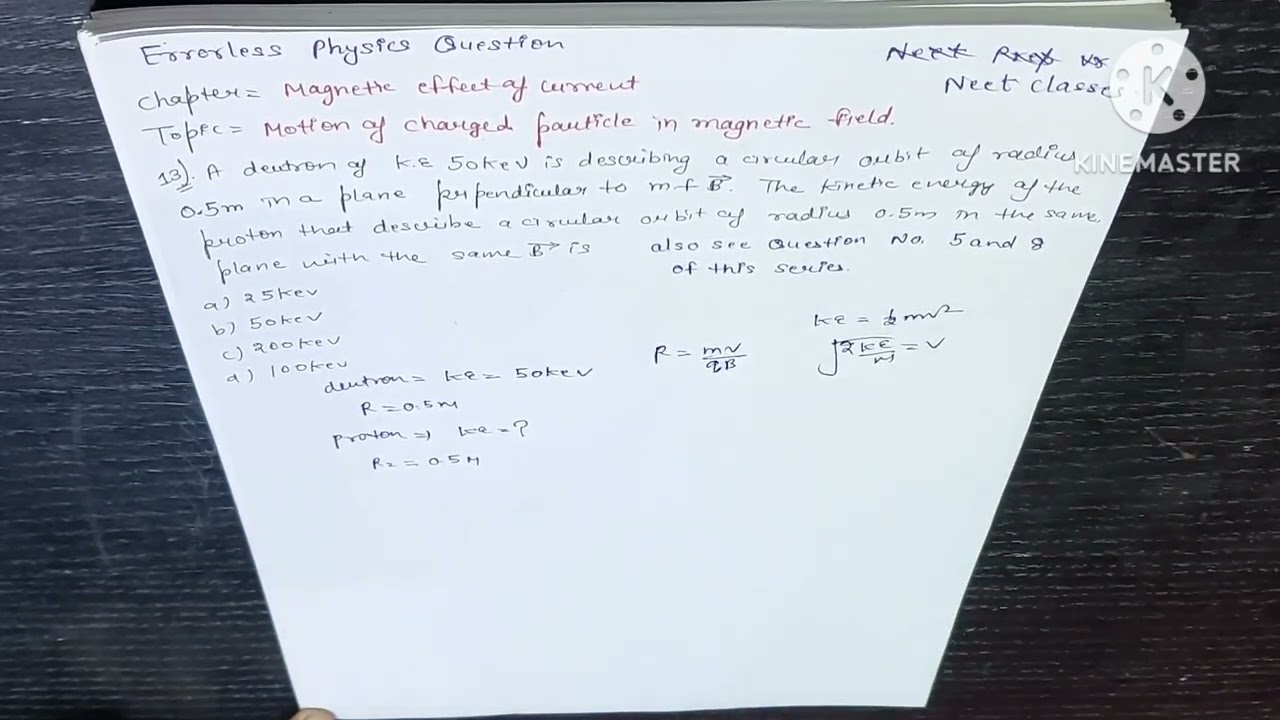 Errorless Physics Question
Neet Prep vs
Chapter = Magnetic effect of current
Neet Classes
Topic = Motion of charged particle in magnetic field.
KINEMASTER
13). A deutron of K.E 50keV is describing a circular orbit of radius
0.5m in a plane perpendicular to m.f B⃗. The kinetic energy of the
proton that describe a circular orbit of radius 0.5m in the same
plane with the same B⃗ is
also see Question No. 5 and 8
of this series.
a) 25keV
b) 50keV
c) 200keV
d) 100keV
deutron = KE = 50keV
R = 0.5M
proton => KE = ?
R2 = 0.5M
R = mv/qB
KE = ½mv²
√2KE/m = V